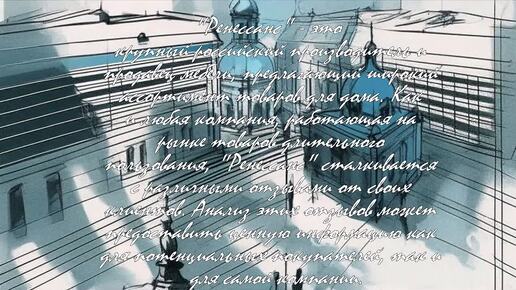 "Ренессанс" - это
крупный российский производитель и
продавец мебели, предлагающий широкий
ассортимент товаров для дома. Как
и любая компания, работающая на
рынке товаров длительного
пользования, "Ренессанс" сталкивается
с различными отзывами от своих
клиентов. Анализ этих отзывов может
предоставить ценную информацию как
для потенциальных покупателей, так и
для самой компании.